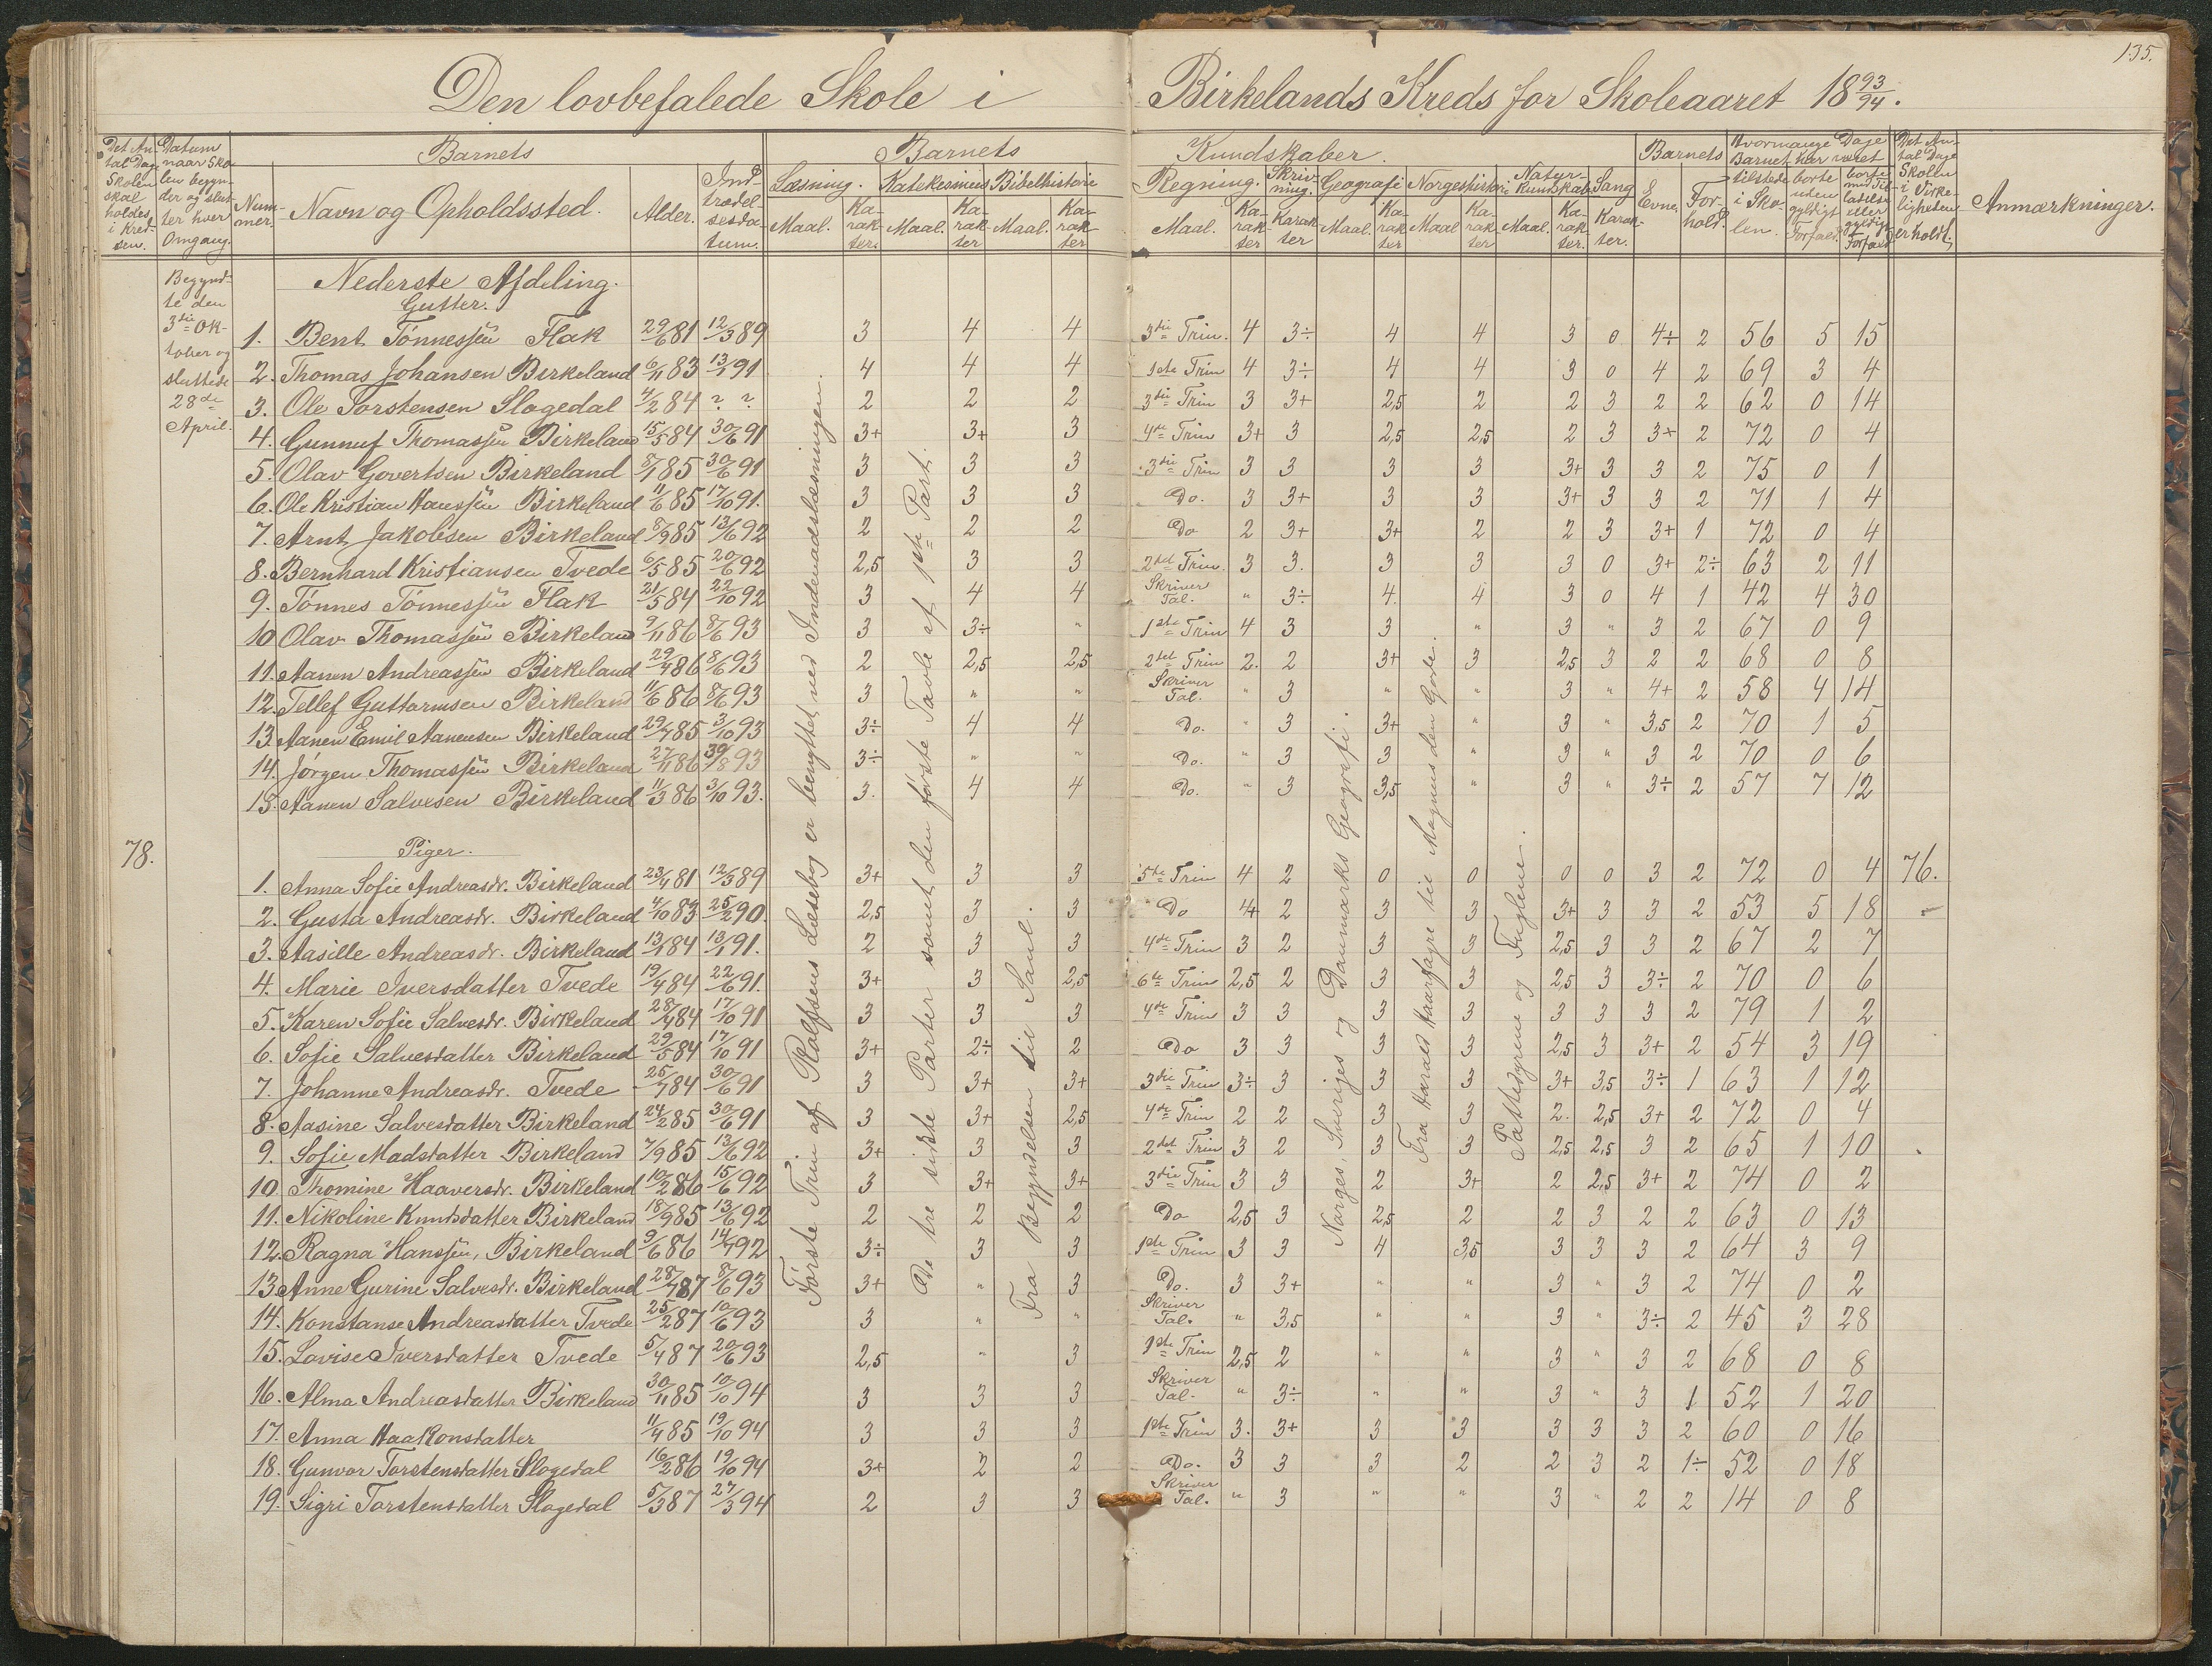 135.
Den lovbefalede Skole i Birkelands Kreds for Skoleaaret 18 93/94.
Det Antal Dage Skolen skal holdes i Kredsen.
Datum naar Skolen begynder og slutter hver Omgang.
Barnets
Nummer.
Navn og Opholdssted.
Alder.
Indtrædelsesdatum.
Barnets Kundskaber.
Læsning. Katekismus Bibelhistorie Regning. Skrivning. Geografi Norgeshistorie Naturkundskab Sang
Maal. Karakter. Maal. Karakter Maal. Karakter Maal. Karakter Karakter Maal. Karakter Maal Karakter Maal. Karakter. Karakter.
Barnets
Evne. Forhold.
Hvormange Dage Barnet har været
tilstede i Skolen. borte uden gyldigt Forfald. borte med Tilladelse eller gyldigt Forfald
Det Antal Dage Skolen i Virkeligheden er holdt.
Anmærkninger.
Begyndte den
3die Oktober og
sluttede
28de
April.
Nederste Afdeling.
Gutter.
1. Bent Tønnessen Flak 29/6 81 12/3 89 3 4 4 3die Trin. 4 3÷ 4 4 3 0 4÷ 2 56 5 15
2. Thomas Johansen Birkeland 6/11 83 13/1 91 4 4 4 1ste Trin 4 3÷ 4 4 3 0 4 2 69 3 4
3. Ole Torstensen Slogedal 4/2 84 ? ? 2 2 2 3die Trin 3 3+ 2,5 2 2 3 2 2 62 0 14
4. Gunnuf Thomassen Birkeland 15/5 84 30/6 91 3+ 3+ 3 4de Trin 3+ 3 2,5 2,5 2 3 3+ 2 72 0 4
5. Olav Govertsen Birkeland 8/1 85 30/6 91 3 3 3 3die Trin 3 3 3 3 3+ 3 3 2 75 0 1
6. Ole Kristian Hanssen Birkeland 11/6 85 17/10 91. 3 3 3 Do. 3 3+ 3 3 3+ 3 3 2 71 1 4
7. Arnt Jakobsen Birkeland 8/9 85 13/6 92 2 2 2 Do 2 3+ 3+ 2 2 3 3+ 1 72 0 4
8. Bernhard Kristiansen Tvede 6/5 85 20/6 92 2,5 3 3 2det Trin. 3 3. 3 3 3 0 3+ 2÷ 63 2 11
9. Tønnes Tønnessen Flak 21/5 84 22/10 92 3 4 4 Skriver Tal. " 3÷ 4. 4 3 0 4 1 42 4 30
10 Olav Thomassen Birkeland 9/11 86 8/6 93 3 3÷ " 1ste Trin 4 3 3 " 3 " 3 2 67 0 9
11. Aanen Andreassen Birkeland 29/4 86 8/6 93 2 2,5 2,5 2det Trin 2. 2 3+ 3 2,5 3 2 2 68 0 8
12. Tellef Guttormsen Birkeland 11/6 86 8/6 93 3 " " Skriver Tal. " 3 " " 3 " 4+ 2 58 4 14
13. Aanen Emil Aanensen Birkeland 29/7 85 3/10 93 3÷ 4 4 Do. " 3 3+ " 3 " 3,5 2 70 1 5
14. Jørgen Thomassen Birkeland 27/11 86 30/8 93 3÷ " " Do. " 3 3 " 3 " 3 2 70 0 6
15. Aanen Salvesen Birkeland 11/3 86 3/10 93. 3. 4 4 Do. " 3 3,5 " 3 " 3÷ 2 57 7 12
78.
Piger.
1. Anna Sofie Andreasdr. Birkeland 23/4 81 12/3 89 3+ 3 3 5te Trin 4 2 0 0 0 0 3 2 72 0 4 76.
2. Gusta Andreasdr. Birkeland 4/10 83 25/2 90. 2,5 3 3 Do 4 2 3 3 3+ 3 3 2 53 5 18
3. Aasille Andreasdr. Birkeland 13/1 84 13/1 91. 2 3 3 4de Trin 3 2 3 3 2,5 3 3 2 67 2 7
4. Marie Iversdatter Tvede 19/4 84 22/6 91. 3+ 3 2,5 6te Trin 2,5 2 3 3 2,5 3 3÷ 2 70 0 6
5. Karen Sofie Salvesdr. Birkeland 28/4 84 17/10 91 3 3 3 4de Trin 3 3 3 3 3 3 3 2 79 1 2
6. Sofie Salvesdatter Birkeland 29/5 84 17/10 91 3+ 2÷ 2 Do 3 3 3 3 2,5 3 3+ 2 54 3 19
7. Johanne Andreasdr. Tvede 25/7 84 30/6 91 3 3+ 3+ 3die Trin 3÷ 3 3 3 3+ 3,5 3÷ 1 63 1 12
8. Aasine Salvesdatter Birkeland 24/2 85 30/6 91 3 3+ 2,5 4de Trin 2 2 3 3 2. 2,5 3+ 2 72 0 4
9. Sofie Madsdatter Birkeland 7/9 85 13/6 92 3+ 3 3 2det Trin 3 2 3 3 2,5 2,5 3 2 65 1 10
10. Thomine Haaversdr. Birkeland 10/2 86 15/6 92 3 3+ 3+ 3die Trin 3 3 2 3+ 2 2,5 3+ 2 74 0 2
11. Nikoline Knutsdatter Birkeland 18/9 85 13/6 92 2 2 2 Do 2,5 3 2,5 2 2 3 2 2 63 0 13
12. Ragna Hanssen, Birkeland 9/6 86 14/7 92 3÷ 3 3 1ste Trin 3 3 4 3,5 3 3 3 2 64 3 9
13. Anne Gurine Salvesdr. Birkeland 28/7 87 8/6 93 3+ " 3 Do. 3 3+ " " 3 " 3 2 74 0 2
14. Konstanse Andreasdatter Tvede 25/2 87 10/6 93 3 " " Skriver Tal. " 3,5 " " 3 " 3÷ 2 45 3 28
15. Lovise Iversdatter Tvede 5/4 87 20/6 93 2,5 " 3 1ste Trin 2,5 2 " " 3 " 3 2 68 0 8
16. Alma Andreasdatter Birkeland 30/11 85 10/10 94 3 3 3 Skriver Tal. " 3÷ " " 3 " 3 1 52 1 20
17. Anna Haakonsdatter 11/4 85 19/10 94 3 3 3 1ste Trin 3. 3+ 3 3 3 3 3 2 60 0 16
18. Gunvor Torstensdatter Slogedal 16/2 86 19/10 94 3+ 2 2 Do. 3 3 3 2 2 3 2 1÷ 52 0 18
19. Sigri Torstensdatter Slogedal 5/3 87 27/3 94 2 3 3 Skriver Tal. " 3 " " 3 " 2 2 14 0 8
Første Trin af Rolfsens Læsebog er benyttet ved Indenadslæsningen.
De tre sidste Parter samt den første Tavle af 1ste Part.
Fra Begyndelsen til Saul.
Norges, Sveriges og Danmarks Geografi.
Fra Harald Haarfagre til Magnus den Gode.
Pattedyrene og Fuglene.